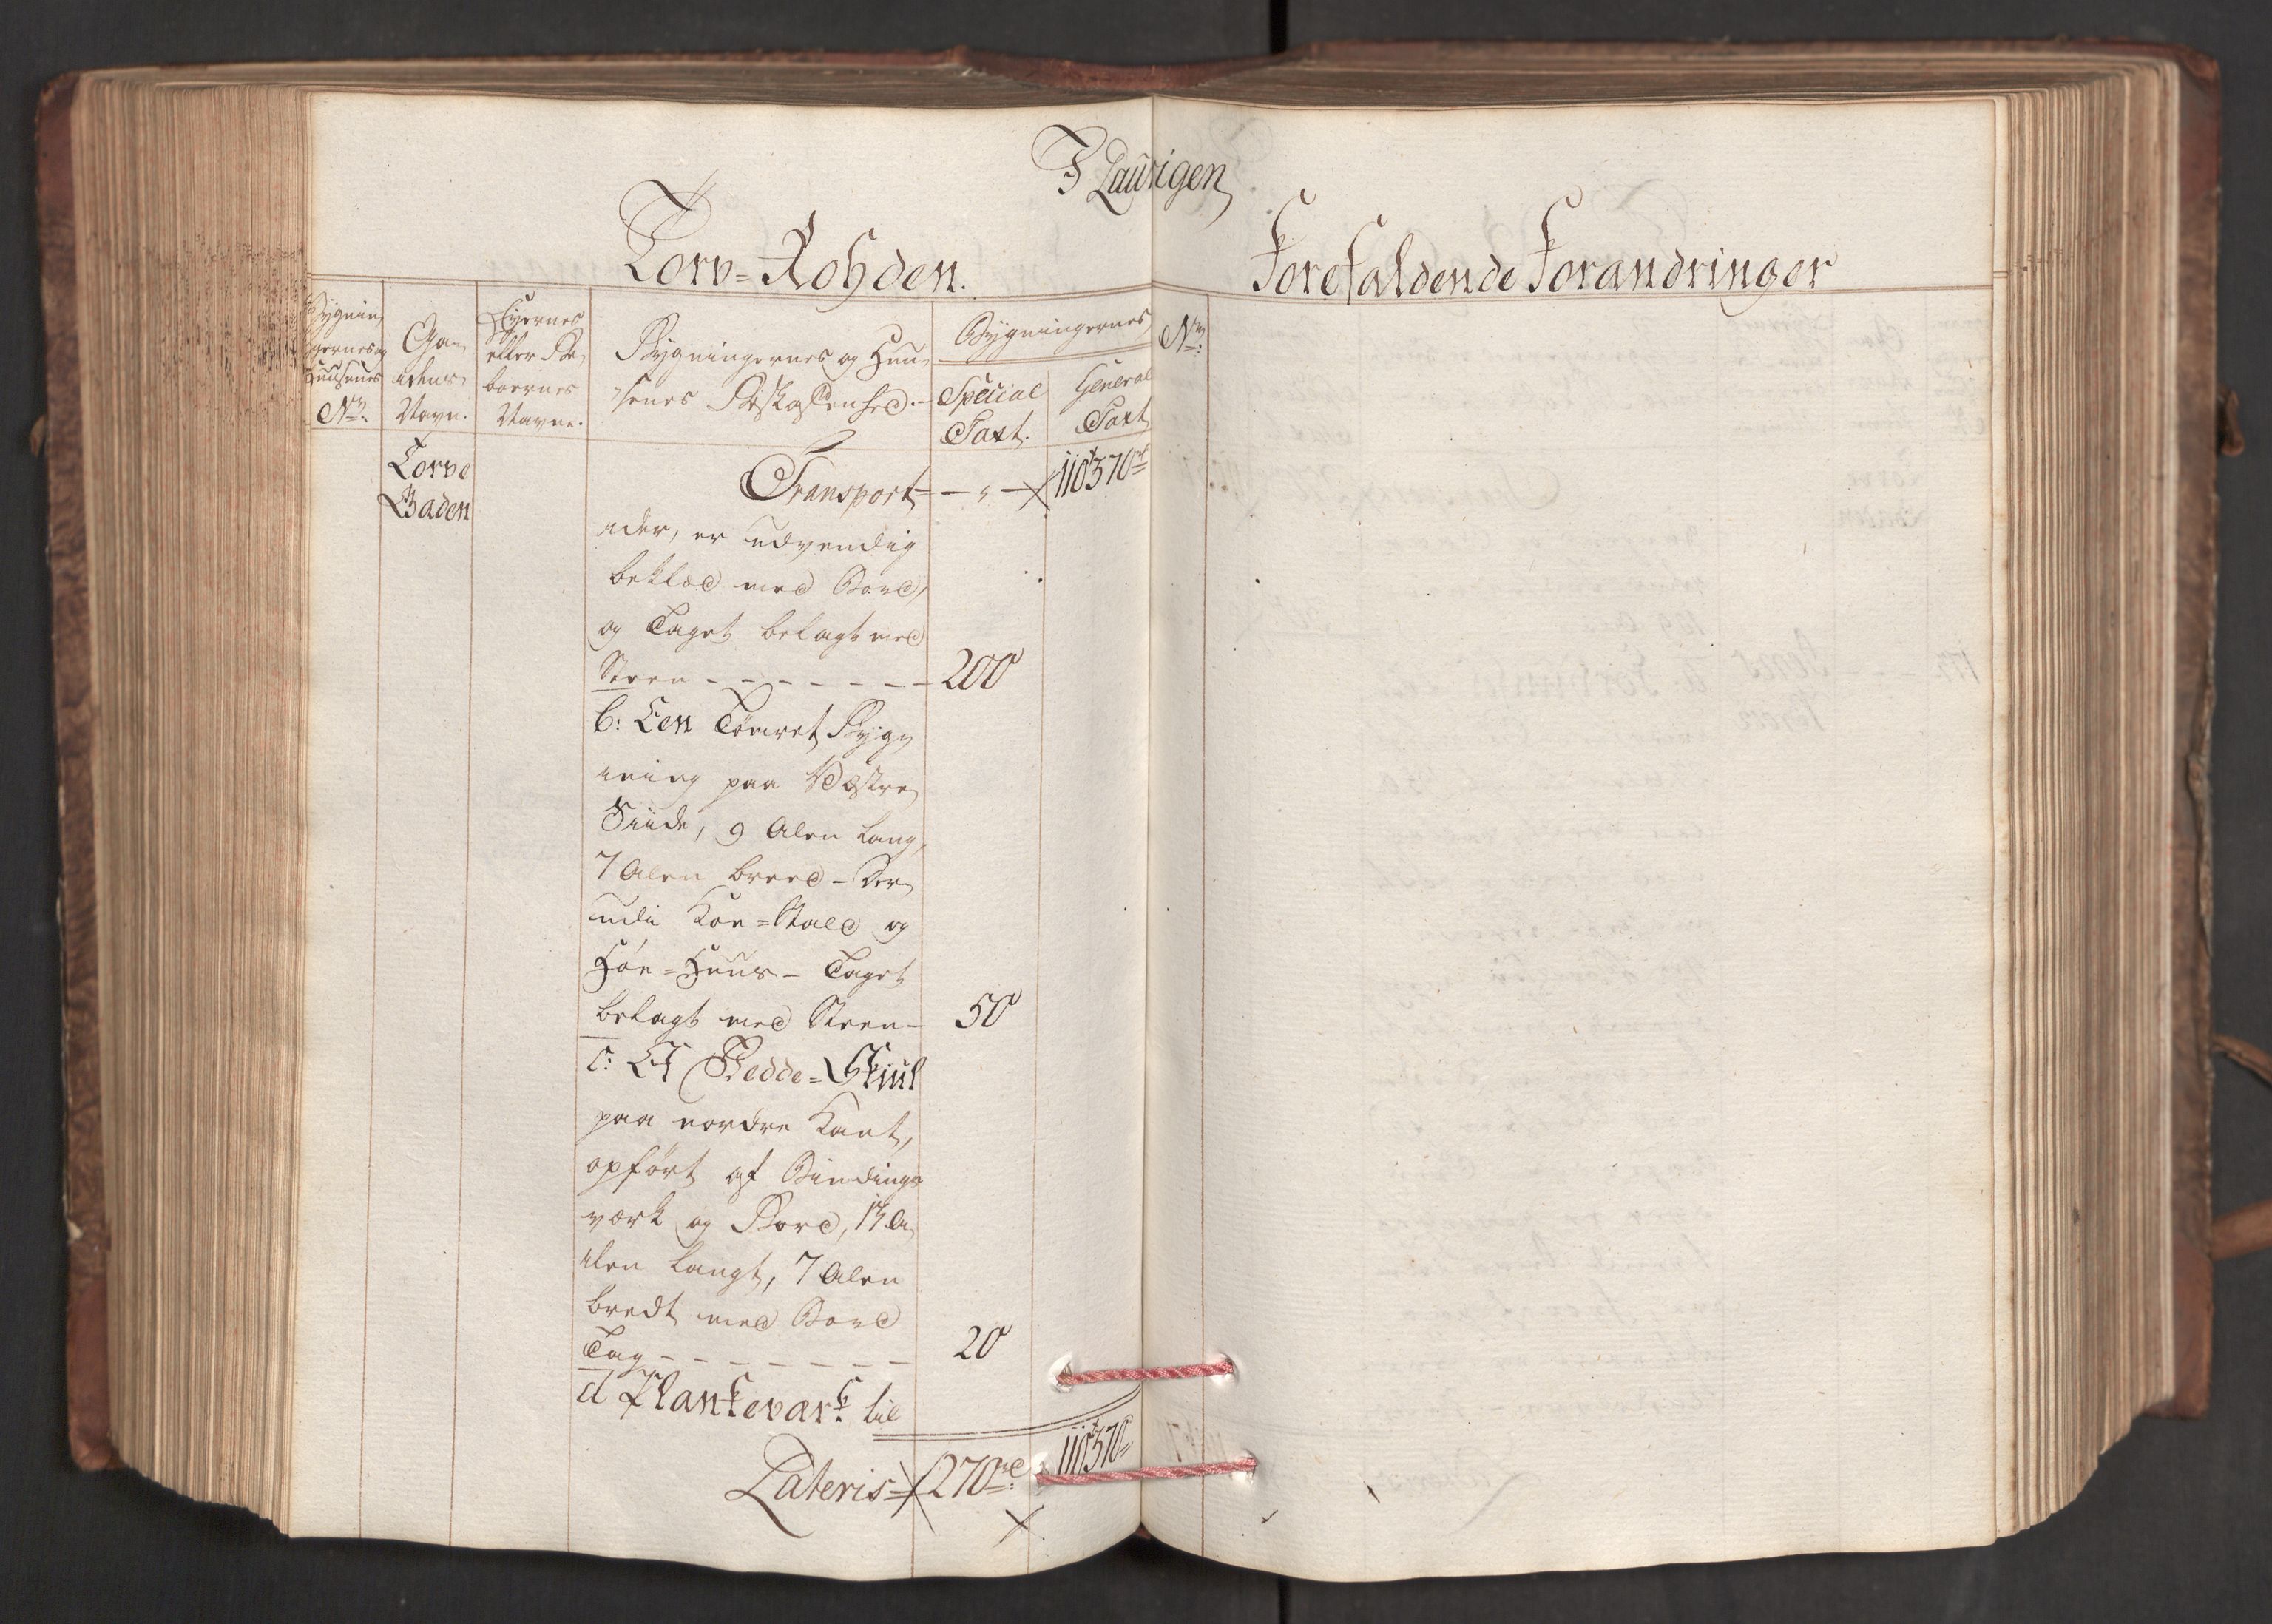 I Laurvigen
Torv=Rohden.
Forefaldende Forandringer
Bygnin
gernes og
Huusenes
No:
Ga-
dens
Navn.
Eyernes
eller Be
boernes
Navne.
Bygningernes og Huu-
senes Beskaffenhed.-
Bygningernes
Special
Taxt.
General
Taxt
No:
Torve
Gaden
Transport - - " - 110370 rd
der, er udvendig
beklæd med Bord,
og Taget belagt med
Steen - - - - - - - 200
b: Een Tømret Byg
ning paa Væstre
Siide, 9 Alen lang,
7 Alen breed - Der
udi Koe=Stald og
Høe=Huus - Taget
belagt med Steen - 50
c: Et Vedde=Skiul
paa nordre Kant,
opført af Bindings
værk og Bord, 13 A
len langt, 7 Alen
bredt med Bord
Tag - - - - - - - 20
d Plankevark til
Lateris 270 rd: 110370